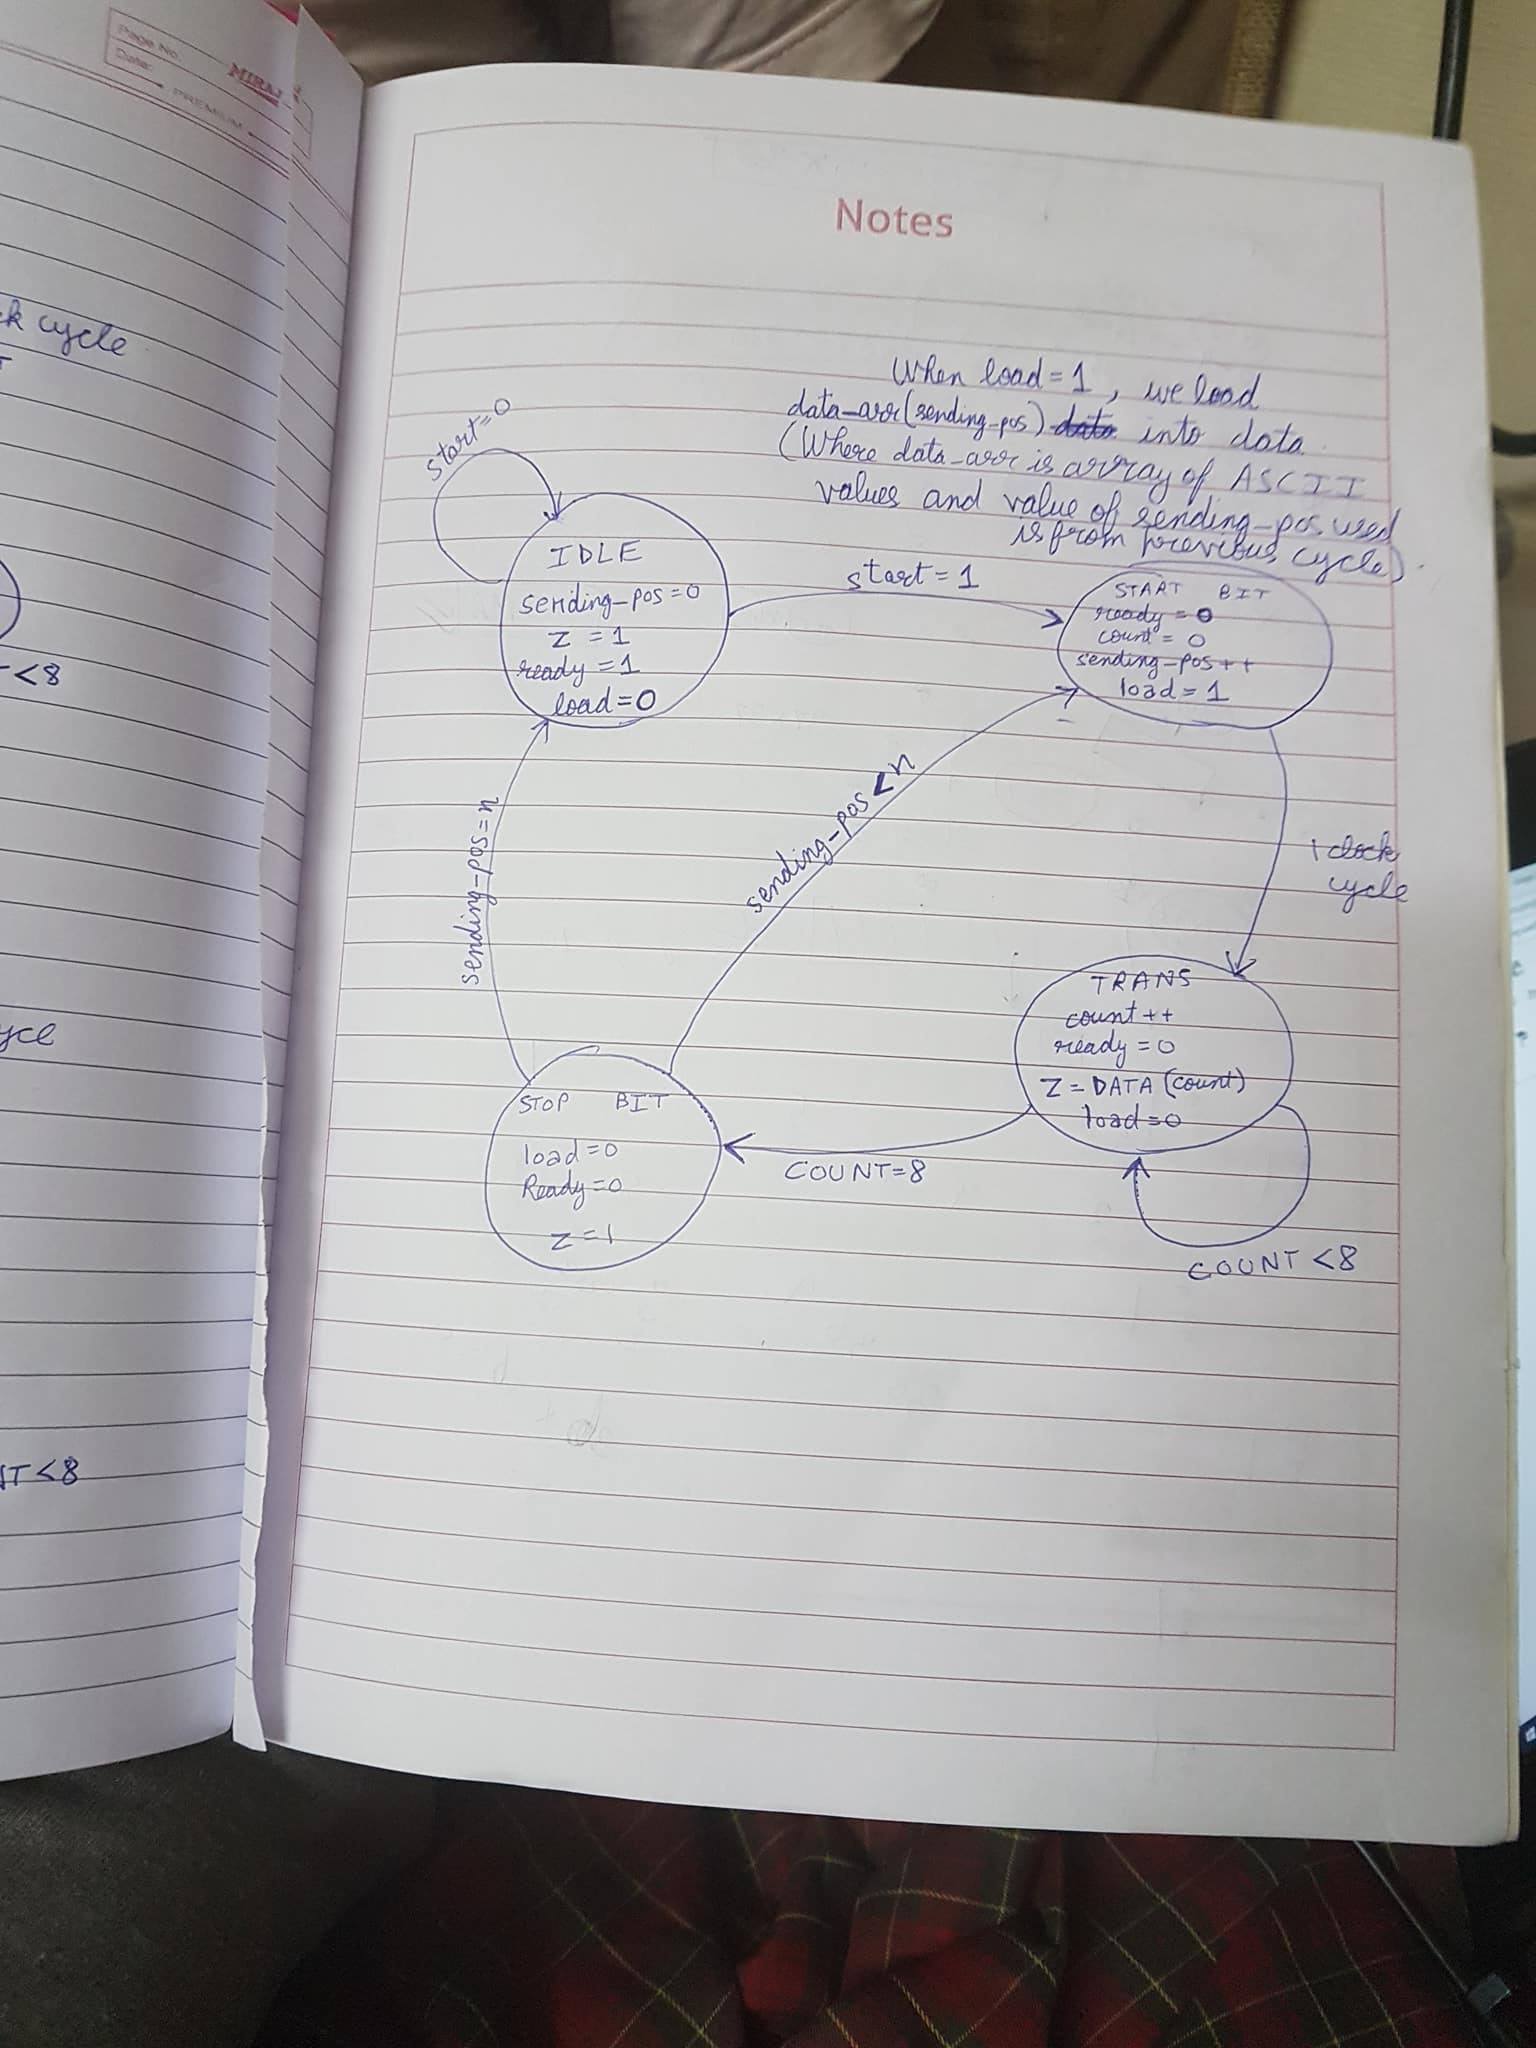 Page No.
Date:
MIRAJ
PREMIUM
ck cycle
<8
NT<8
Notes
When load=1, we load
data_arr(sending_pos) data into data
(Where data_arr is array of ASCII
values and value of sending_pos used
is from previous cycle).
start=0
IDLE
sending_pos=0
Z=1
ready=1
load=0
start=1
START BIT
ready=0
count=0
sending_pos++
load=1
sending_pos=n
sending_pos<n
1 clock
cycle
TRANS
count++
ready=0
Z=DATA(count)
load=0
STOP BIT
load=0
Ready=0
Z=1
COUNT=8
COUNT<8